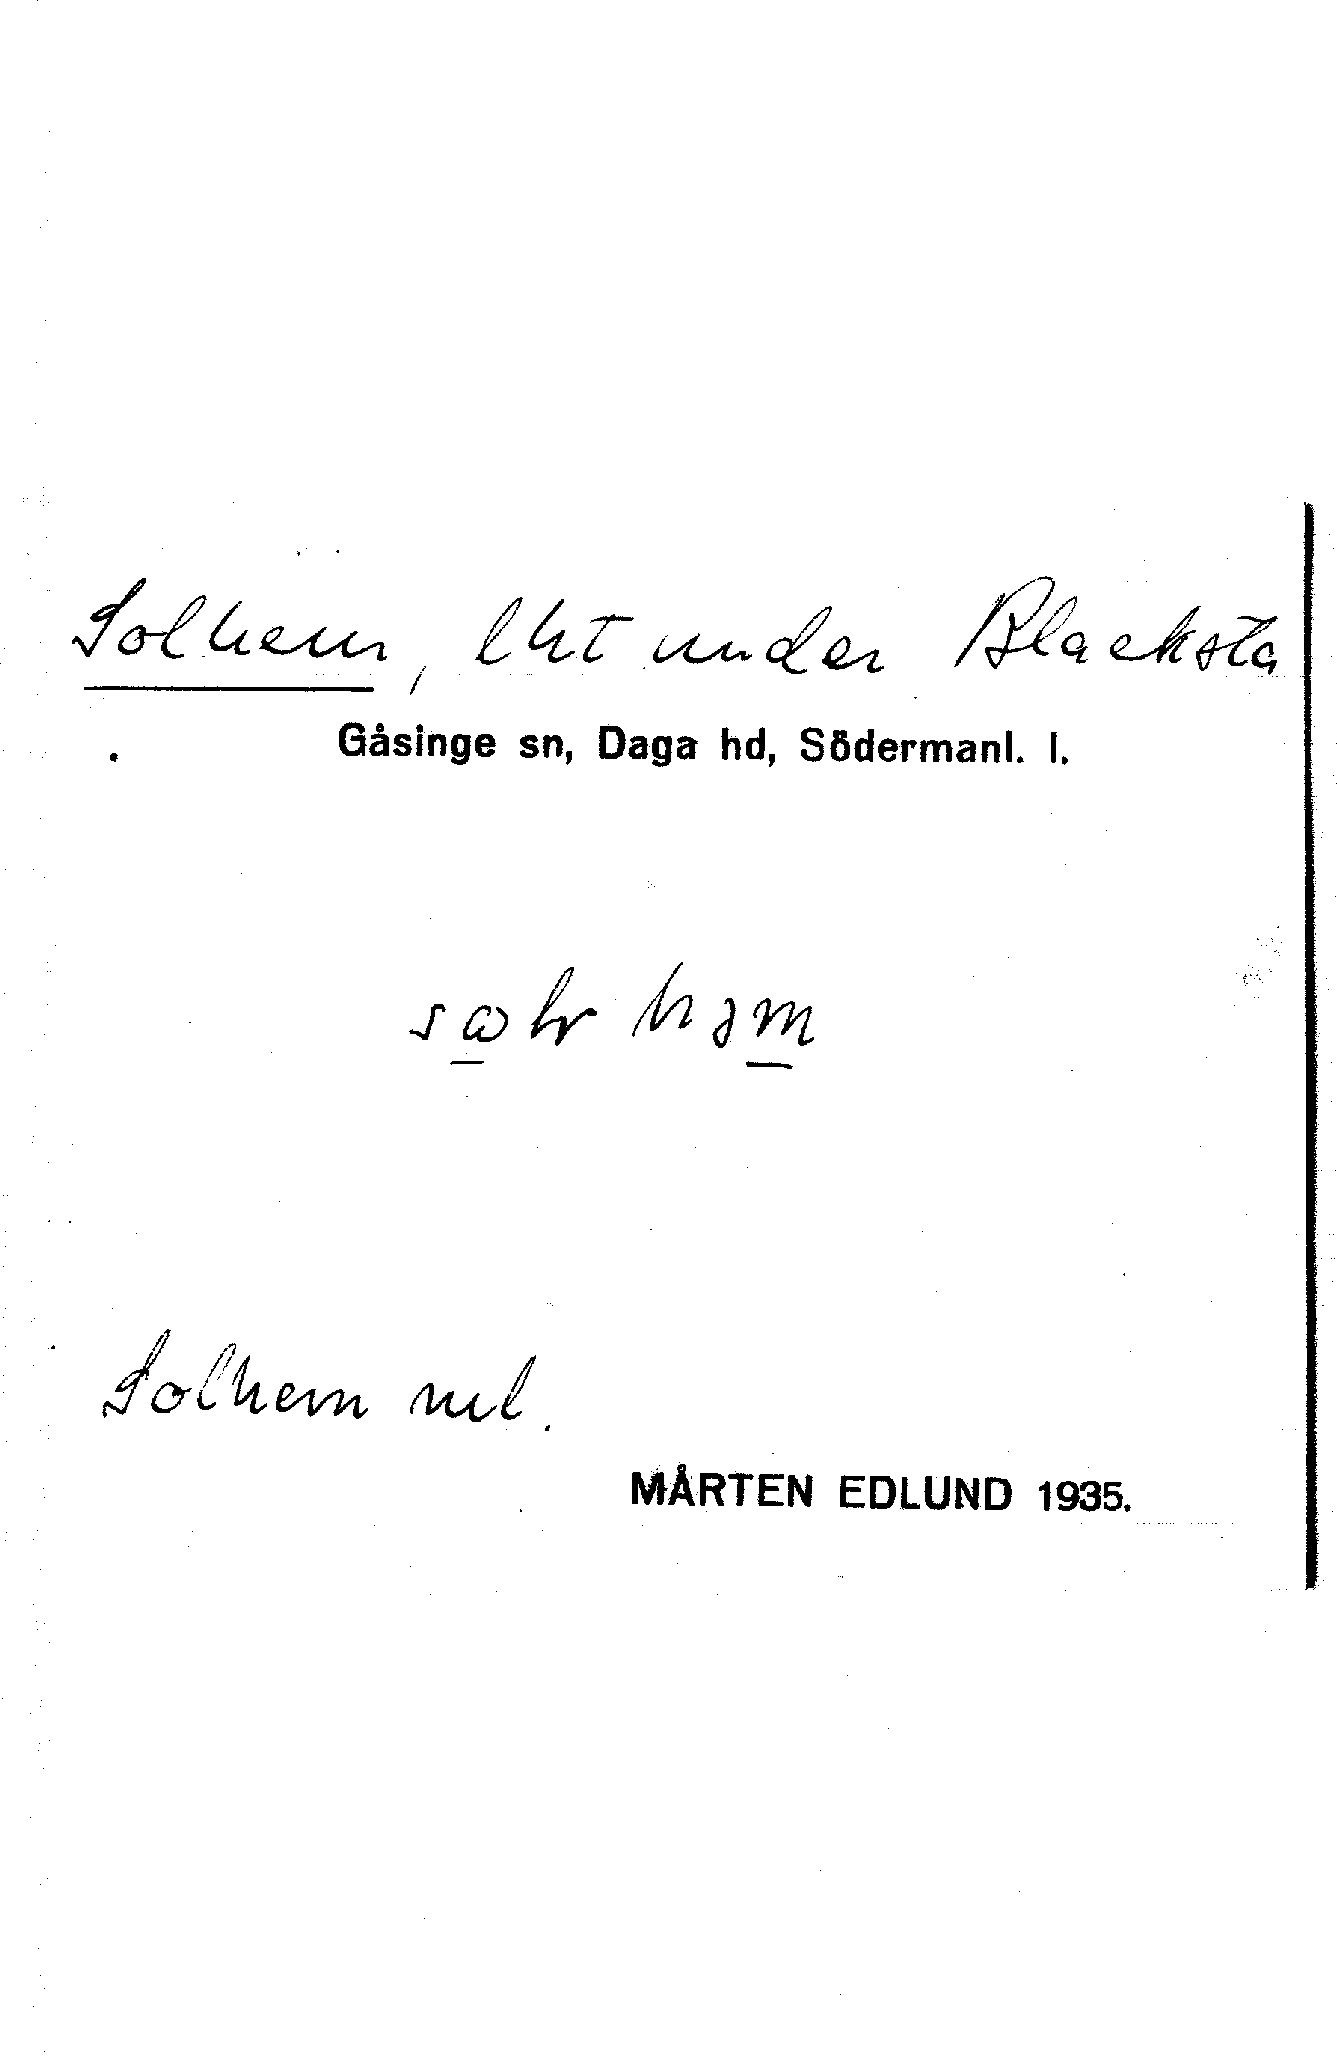 Solhem, lht under Blacksta
Gåsinge sn, Daga hd, Södermanl. l.
Solhem
MÅRTEN EDLUND 1935.